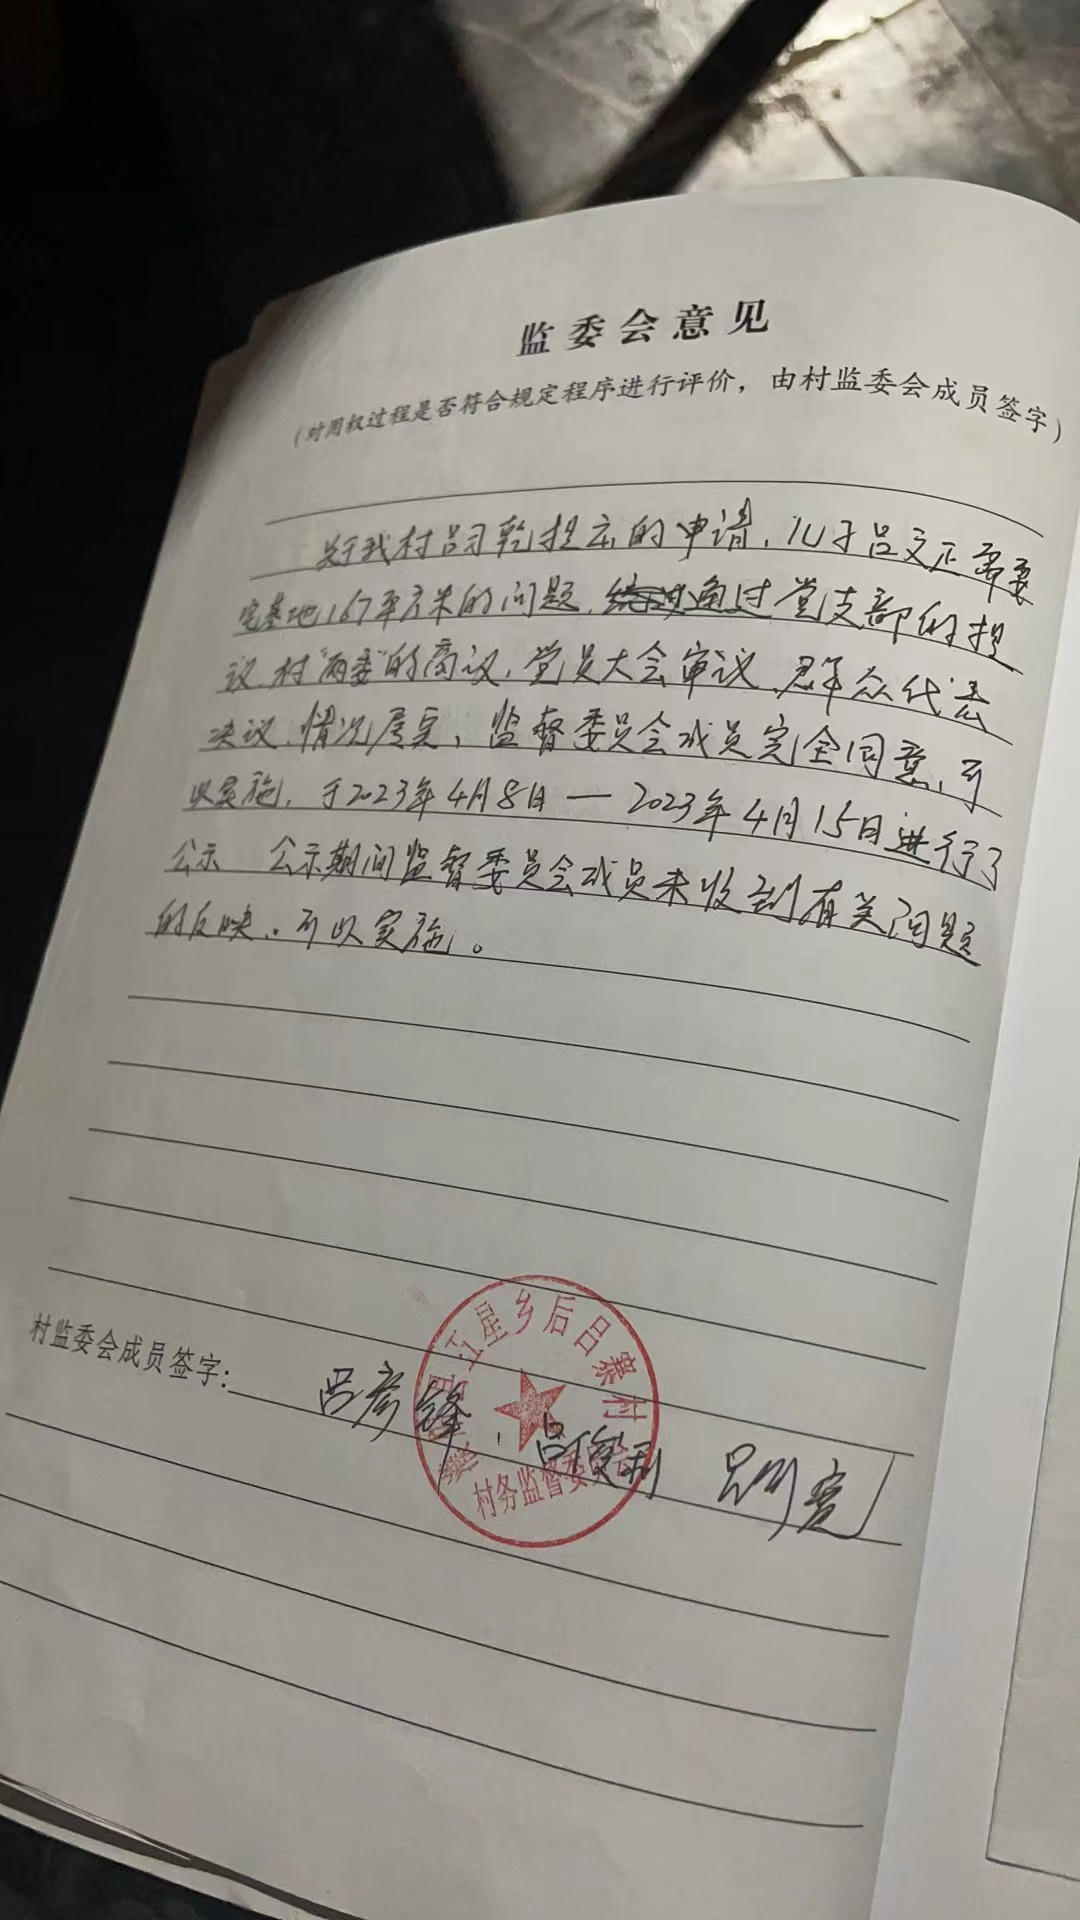 监委会意见
（对用权过程是否符合规定程序进行评价，由村监委会成员签字）
关于我村吕习乾提出的申请，儿子吕文正需要
宅基地167平方米的问题，通过党支部的提
议、村"两委"的商议，党员大会审议、群众代表
决议，情况属实，监督委员会成员完全同意，可
以实施，于2023年4月8日—2023年4月15日进行了
公示 公示期间监督委员会成员未收到有关问题
的反映。可以实施。
村监委会成员签字：
吕彦锋、吕俊利 吕
县江星乡后吕寨村
村务监督委员会